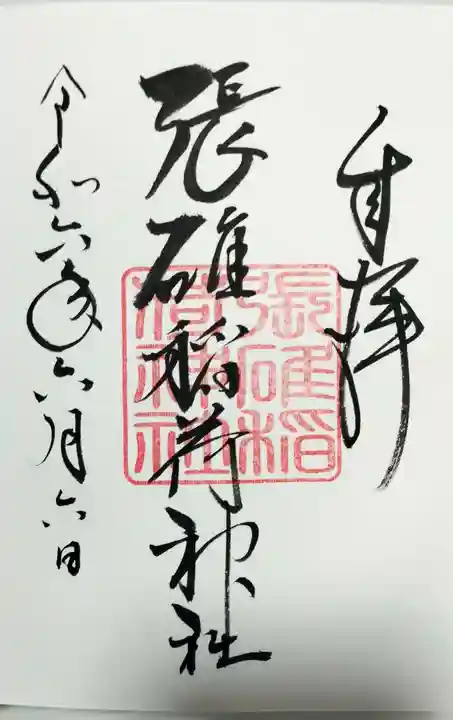 奉拝
張碓稲荷神社
張碓稲
荷神社
令和六年六月六日